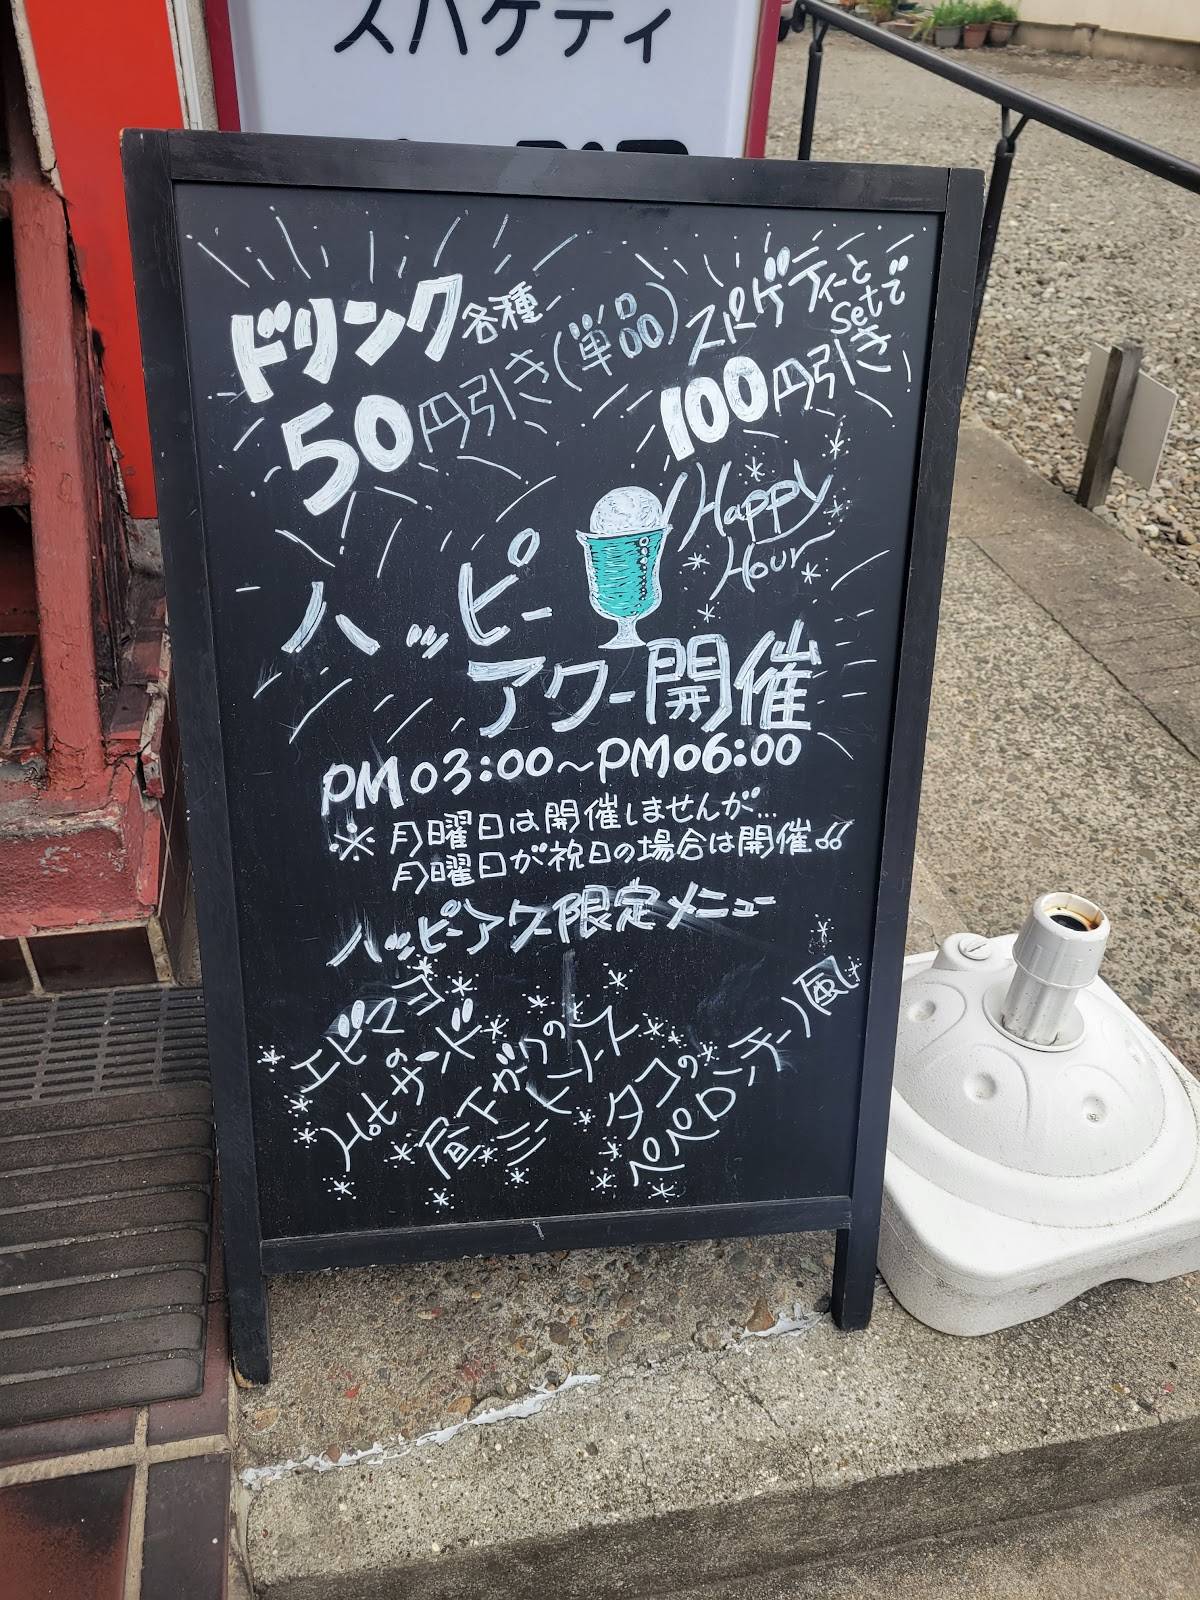 スパゲティ
ドリンク各種
50円引き(単品)
スパゲティーと
Setで
100円引き!
Happy
Hour
ハッピー
アワー開催
PM03:00~PM06:00
※月曜日は開催しませんが…
月曜日が祝日の場合は開催!!
ハッピーアワー限定メニュー
エビマヨの
Hotサンド
昼下がりの
ミートソース
タコの
ペペロンチーノ風